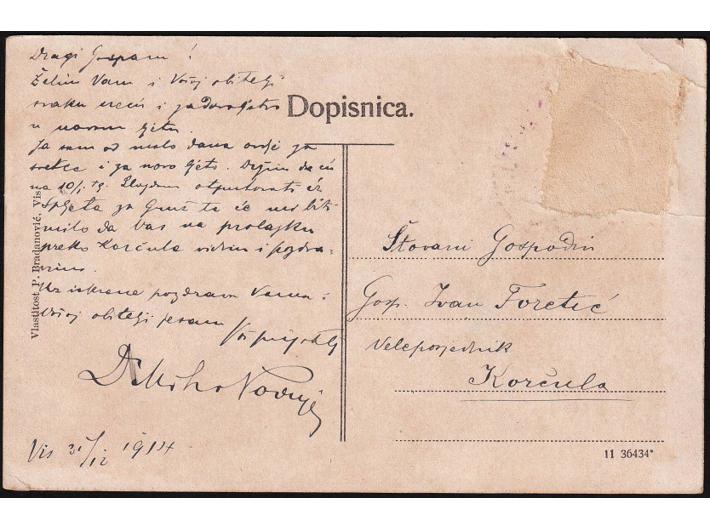 Dragi Gospam!
Želim Vam i Vašoj obitelji
svaku sreću i zadovoljstvo
u novom ljetu.
Ja sam od malo dana ovdje za
svetce i za novo ljeto. Držim da ću
na 10/1. 15. otputovati iz
Spljeta za Gruž te će mi biti
milo da Vas na prolasku
preko Korčula vidim i pozdra-
vim.
Uz iskrene pozdrave Vama i
Vašoj obitelji jesam
Vaš prijatelj
Dr Miho
Vis 31/12 1914
Vlastitost P. Bradanović, Vis
Dopisnica.
Štovani Gospodin
Gosp. Ivan Foretić
Veleposjednik
Korčula
11 36434*